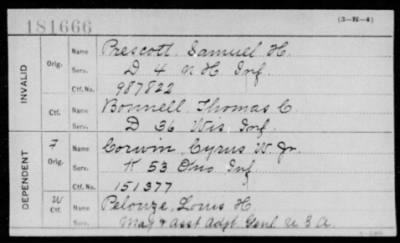 181666
(3-M-4)
INVALID
Orig.
Name Prescott, Samuel H.
Serv. D 4 N H Inf.
Ctf. No. 987822
Ctf.
Name Bonnell, Thomas C.
Serv. D 36 Wis. Inf.
DEPENDENT
F
Orig.
Name Corwin, Cyrus W. Jr.
Serv. K 53 Ohio Inf
Ctf. No. 151377
W
Ctf.
Name Pelouze, Louis H.
Serv. Maj & asst Adjt. Genl U S A.